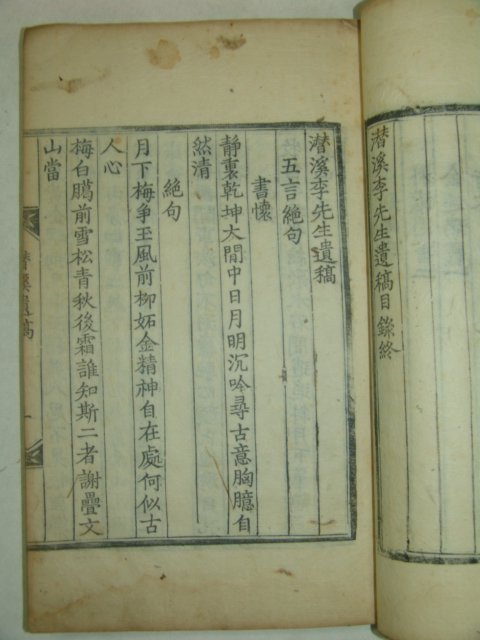 潛溪李先生遺稿目錄終
潛溪李先生遺稿
五言絶句
書懷
靜裏乾坤大閒中日月明沉吟尋古意胸臆自
然清
絶句
月下梅争玉風前柳妬金精神自在處何似古
人心
梅白臈前雪松青秋後霜誰知斯二者謝疊文
山當
潛溪遺稿
一